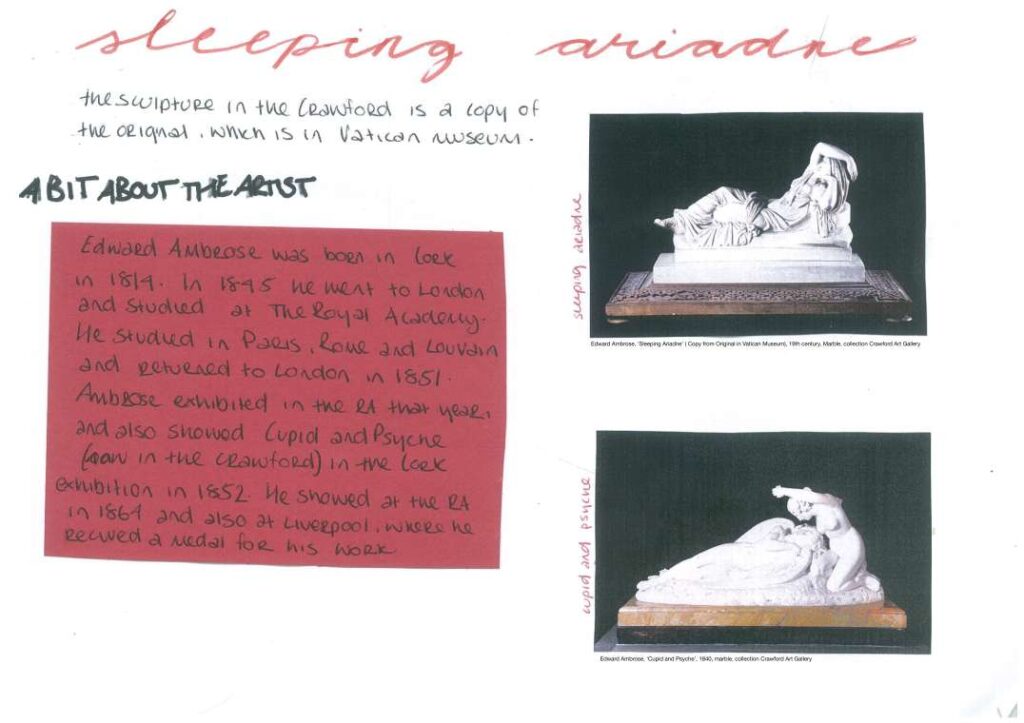 sleeping ariadne
the sculpture in the Crawford is a copy of
the orignal, which is in Vatican museum.
A BIT ABOUT THE ARTIST
Edward Ambrose was born in Cork
in 1814. In 1845 he went to London
and studied at The Royal Academy.
He studied in Paris, Rome and Louvain
and returned to London in 1851.
Ambrose exhibited in the RA that year,
and also showed Cupid and Psyche
in the Crawford) in the Cork
exhibition in 1852. He showed at the RA
in 1864 and also at Liverpool, where he
recived a medal for his work
sleeping ariadne
Edward Ambrose, 'Sleeping Ariadne' ( Copy from Original in Vatican Museum), 19th century, Marble, collection Crawford Art Gallery
cupid and psyche
Edward Ambrose, 'Cupid and Psyche', 1840, marble, collection Crawford Art Gallery